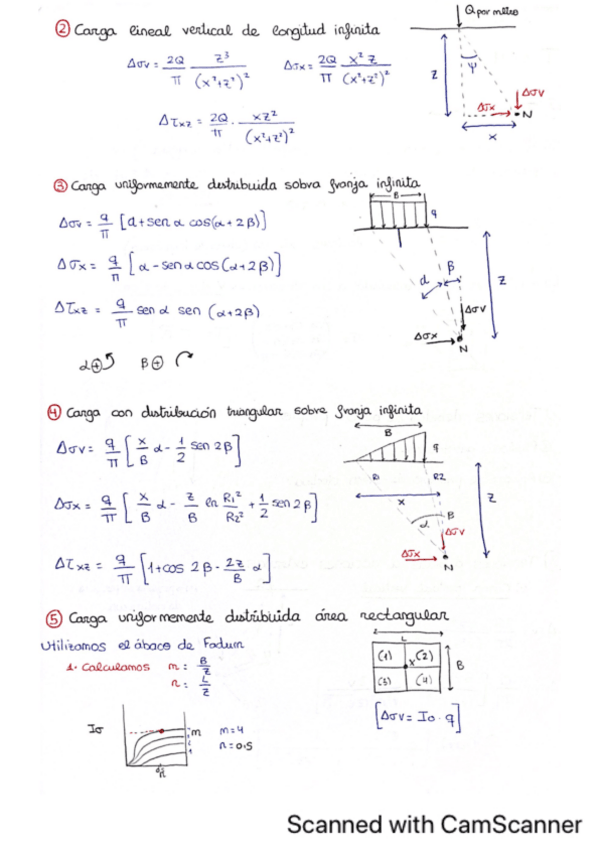 ② Carga lineal vertical de longitud infinita
Q por metro
Δσv = 2Q/π z³/(x²+z²)² Δσx = 2Q/π x²z/(x²+z²)²
z ψ
Δτxz = 2Q/π · xz²/(x²+z²)²
Δσx Δσv N
x
③ Carga uniformemente distribuida sobra franja infinita
B
q
Δσv = q/π [α+sen α cos(α+2β)]
Δσx = q/π [α - sen α cos(α+2β)]
β
α
z
Δτxz = q/π sen α sen (α+2β)
Δσv
Δσx
N
α⊕ β⊕
④ Carga con distribución triangular sobre franja infinita
B
q
Δσv = q/π [x/B α - 1/2 sen 2β]
R2
z
Δσx = q/π [x/B α - z/B ln R1²/R2² + 1/2 sen 2β]
x
α β
Δσv
Δσx
N
Δτxz = q/π [1+cos 2β - 2z/B α]
⑤ Carga uniformemente distribuida área rectangular
Utilizamos el ábaco de Fadum
1. Calculamos m: B/z
n: L/z
L
(1) x (2) B
(3) (4)
[Δσv = Iσ · q]
Iσ
m
m=4
n=0.5
Scanned with CamScanner